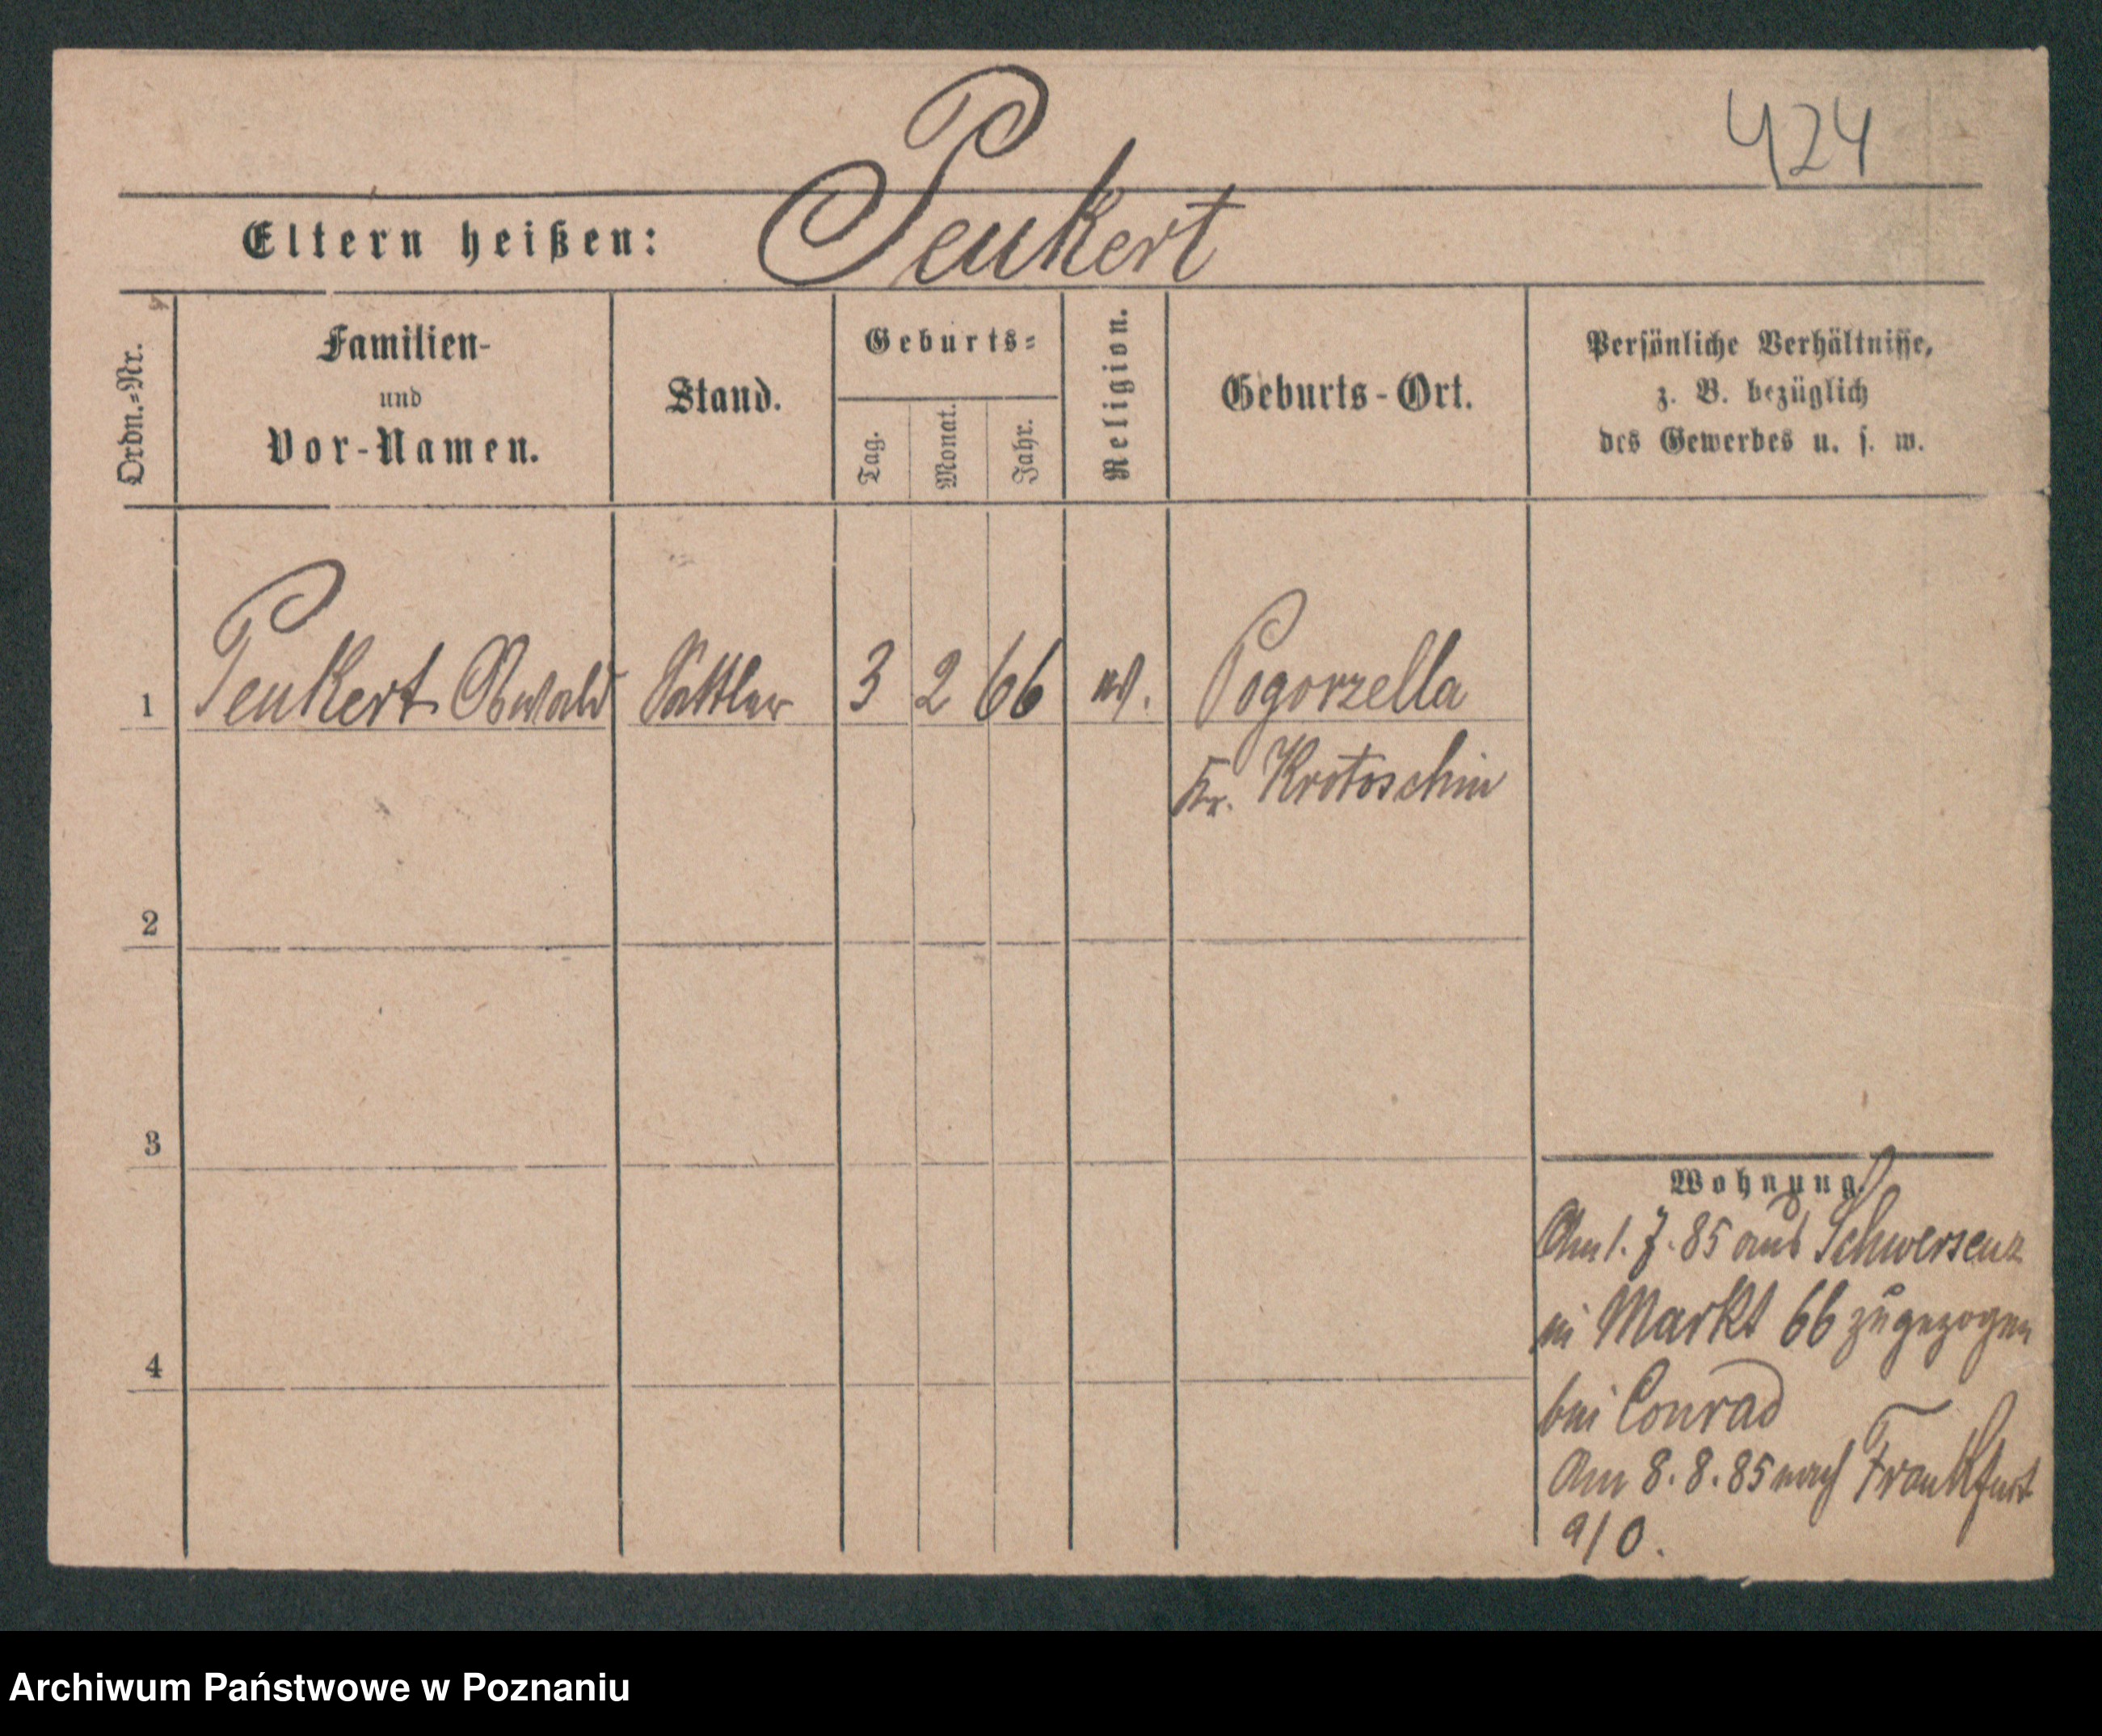 424
Peukert
Eltern heißen:
Ordn.=Nr.
Familien-
und
Vor-Namen.
Stand.
Geburts=
Tag.
Monat.
Jahr.
Religion.
Geburts-Ort.
Persönliche Verhältnisse,
z. B. bezüglich
des Gewerbes u. s. w.
1 Peukert Oswald Sattler 3 2 66 ev. Pogorzella
Kr. Krotoschin
2
3
4
Wohnung.
Am 1. 7. 85 aus Schwersenz
in Markt 66 zugezogen
bei Conrad
Am 8. 8. 85 nach Frankfurt
a/O.
Archiwum Państwowe w Poznaniu